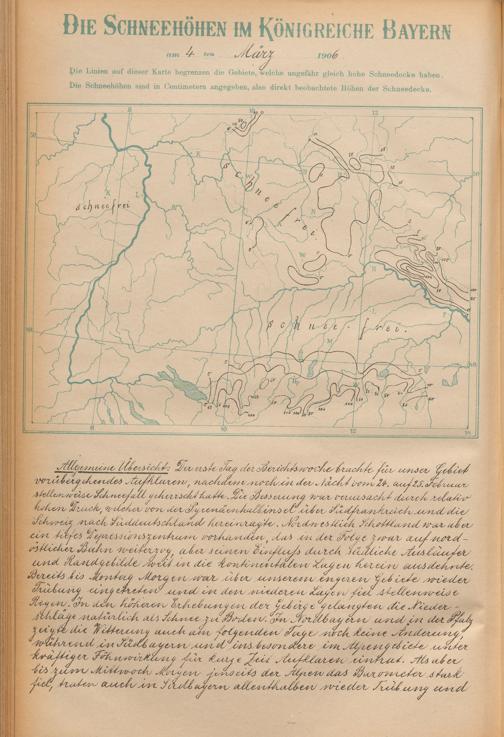 DIE SCHNEEHÖHEN IM KÖNIGREICHE BAYERN
am 4 ten März 1906
Die Linien auf dieser Karte begrenzen die Gebiete, welche ungefähr gleich hohe Schneedecke haben.
Die Schneehöhen sind in Centimetern angegeben, also direkt beobachtete Höhen der Schneedecke.
schneefrei
schneefrei.
schnee-frei.
Allgemeine Übersicht: Der erste Tag der Berichtswoche brachte für unser Gebiet
vorübergehendes Aufklaren, nachdem noch in der Nacht vom 24. auf 25. Februar
stellenweise Schneefall geherrscht hatte. Die Besserung war verursacht durch relativ
hohen Druck, welcher von der Pyrenäenhalbinsel über Südfrankreich und die
Schweiz nach Süddeutschland hereinragte. Nordwestlich Schottland war aber
ein tiefes Depressionszentrum vorhanden, das in der Folge zwar auf nord-
östlicher Bahn weiterzog, aber seinen Einfluss durch südliche Ausläufer
und Randgebilde weit in die kontinentalen Lagen herein ausdehnte.
Bereits bis Montag Morgen war über unserem engeren Gebiete wieder
Trübung eingetreten und in den niederen Lagen fiel stellenweise
Regen. In den höheren Erhebungen der Gebirge gelangten die Nieder-
schläge natürlich als Schnee zu Boden. In Nordbayern und in der Pfalz
zeigte die Witterung auch am folgenden Tage noch keine Änderung,
während in Südbayern und insbesondere im Alpengebiete unter
kräftiger Föhnwirkung für kurze Zeit Aufklaren eintrat. Als aber
bis zum Mittwoch Morgen jenseits der Alpen das Barometer stark
fiel, traten auch in Südbayern allenthalben wieder Trübung und